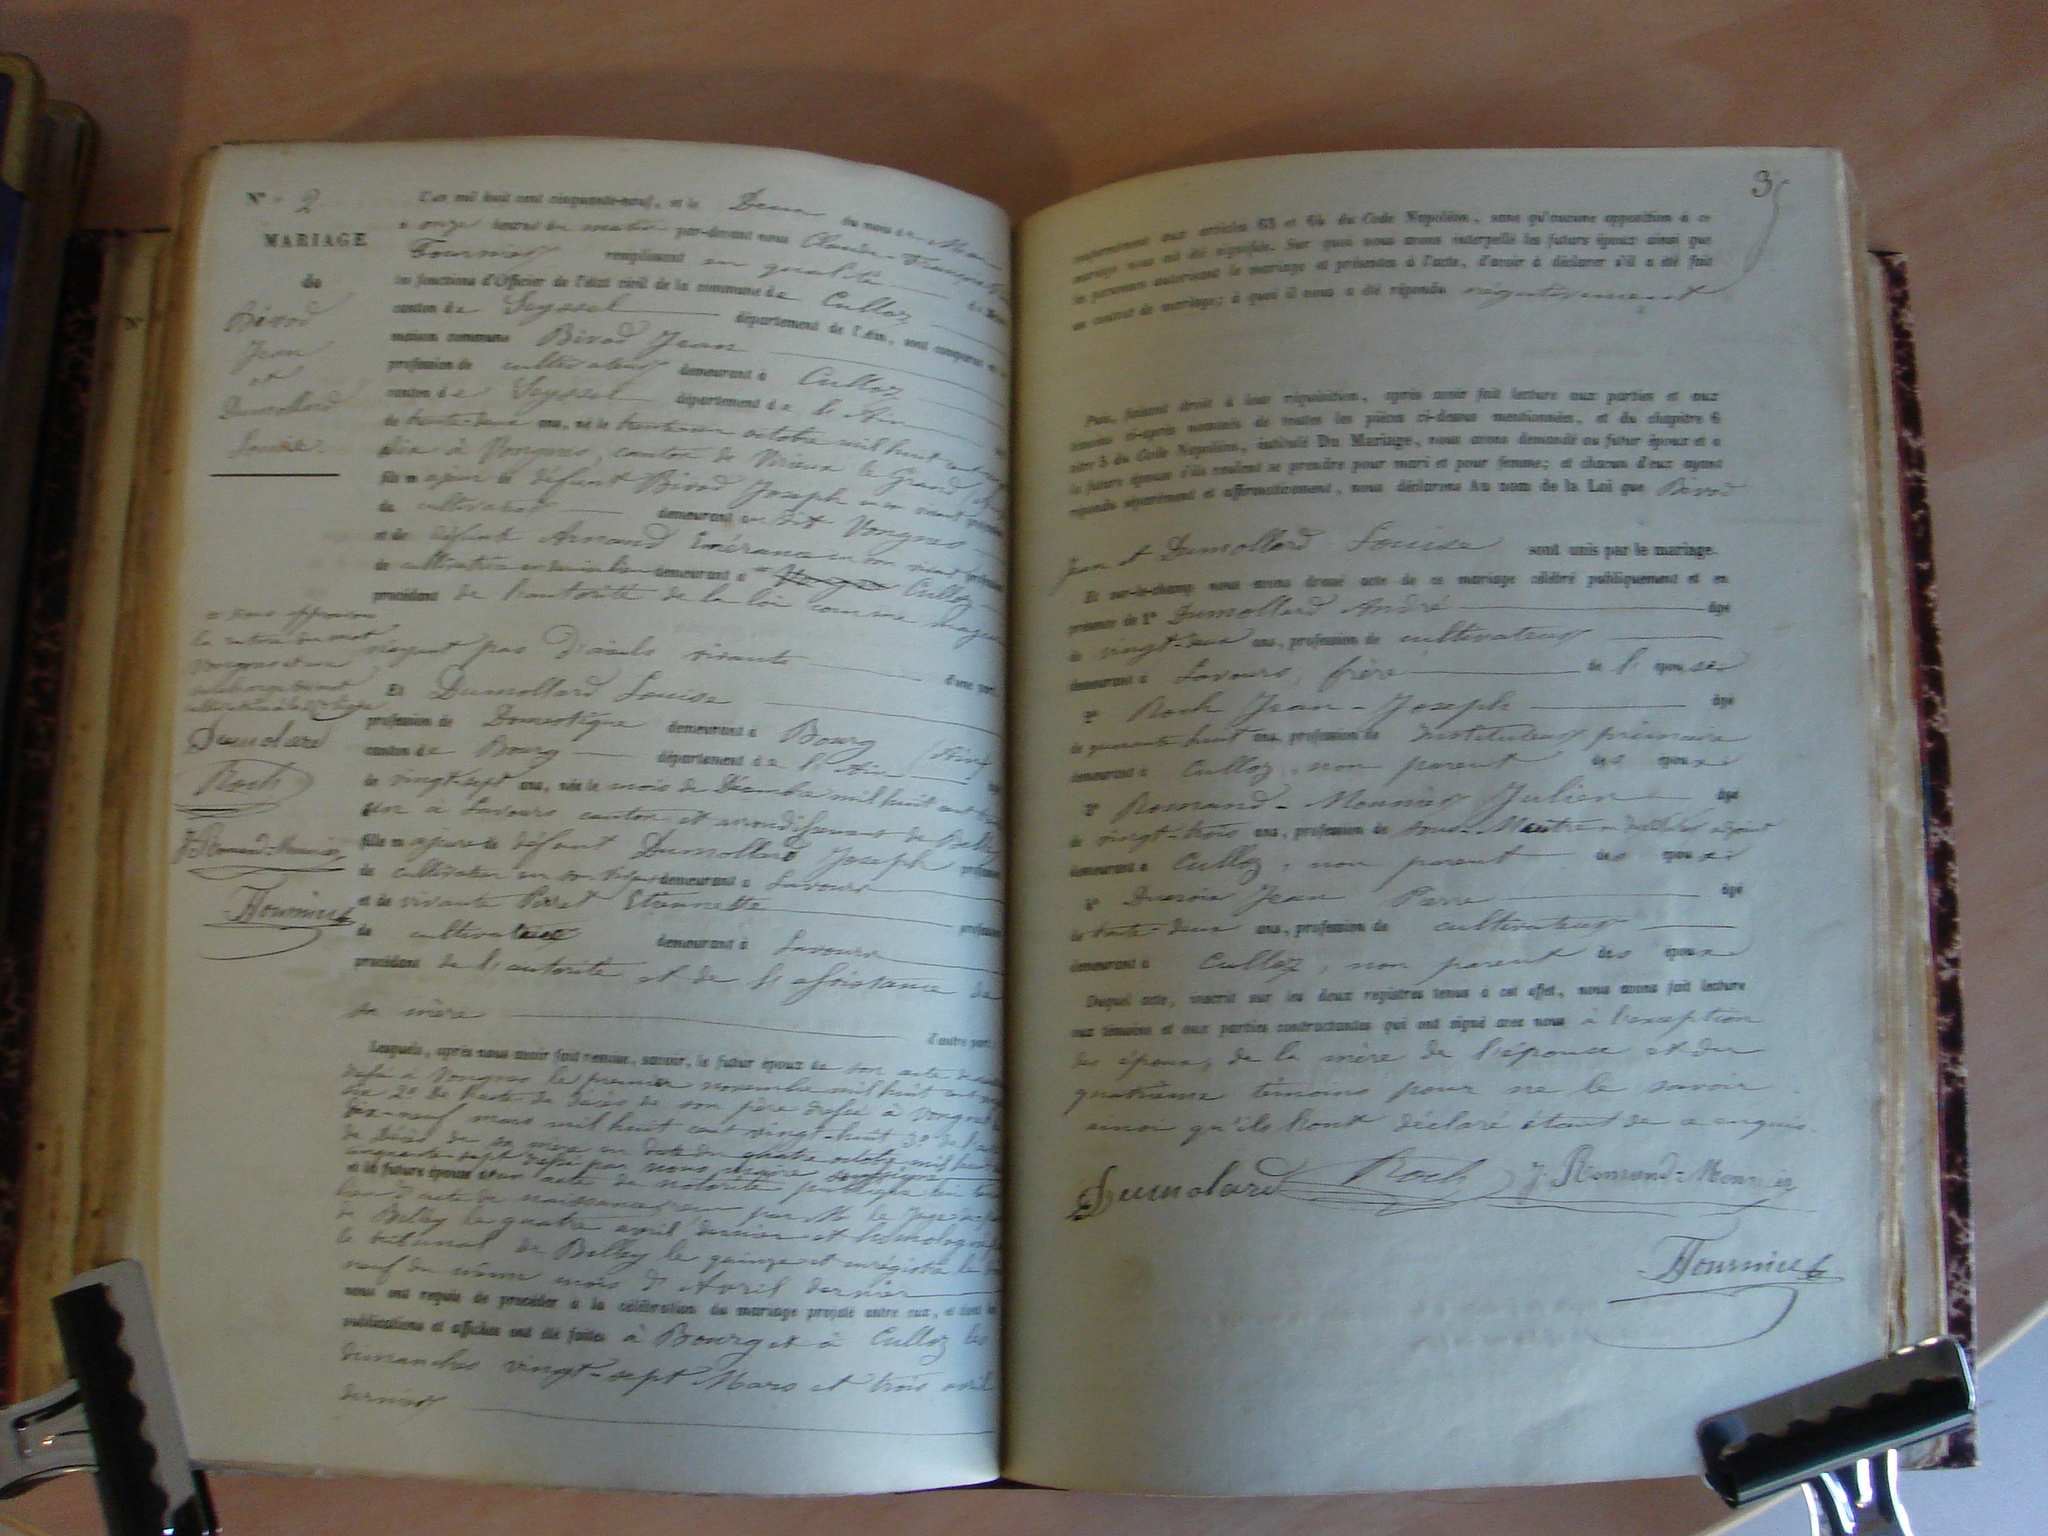 N° 2
MARIAGE
de
Bivod
Jean
et
Dumollard
Louise
L'an mil huit cent cinquante-neuf, et le Deux du mois de Mai
à onze heures du matin par-devant nous Claude-François
Fournier remplissant en qualité de
les fonctions d'Officier de l'état civil de la commune de Culloz
canton de Seyssel département de l'Ain, sont comparus en
maison commune Bivod Jean
profession de cultivateur demeurant à Culloz
canton de Seyssel département de l'Ain
de trente-deux ans, né le trente-un octobre mil huit cent vingt
six à Vongnes, canton de Virieu le Grand
fils majeur de défunt Bivod Joseph en son vivant profession
de cultivateur demeurant audit Vongnes
et de défunte Arnand Emérance en son vivant profession
de cultivatrice en son vivant demeurant à Culloz
procédant de l'autorité de la loi comme majeur
n'ayant pas d'aïeuls vivants
d'une part,
= nous approuvons
la rature du mot
Vongnes et
Dumolard
Roch
J. Romand-Monnier
Fournier
Et Dumollard Louise
profession de Domestique demeurant à Bourg (Ain)
canton de Bourg département de l'Ain
de vingt-sept ans, née le mois de Décembre mil huit cent trente
un à Lavours canton et arrondissement de Belley
fille majeure de défunt Dumollard Joseph profession
de cultivateur en son vivant demeurant à Lavours
et de vivante Pivet Etiennette profession
de cultivatrice demeurant à Lavours
procédant de l'autorité et de l'assistance de
sa mère
d'autre part.
Lesquels, après nous avoir fait remise, savoir, le futur époux de son acte de naissance
dressé à Vongnes le premier novembre mil huit cent vingt
six 2° de l'acte de décès de son père dressé à Vongnes le
dix-neuf mars mil huit cent vingt-huit 3° de l'acte
de décès de sa mère en date du quatre octobre mil huit cent
cinquante-sept dressé par nous maire soussigné
et la future épouse d'un acte de notoriété publique lui tenant
lieu d'acte de naissance, reçu par Mr le Juge de paix
de Belley le quatre avril dernier et homologué par
le tribunal de Belley le quinze et enregistré le dix
neuf du même mois d'Avril dernier
nous ont requis de procéder à la célébration du mariage projeté entre eux, et dont les
publications et affiches ont été faites à Bourg et à Culloz les
dimanches vingt-sept Mars et trois avril
dernier
3
conformément aux articles 63 et 64 du Code Napoléon, sans qu'aucune opposition à ce
mariage nous ait été signifiée. Sur quoi nous avons interpellé les futurs époux ainsi que
les personnes autorisant le mariage et présentes à l'acte, d'avoir à déclarer s'il a été fait
un contrat de mariage; à quoi il nous a été répondu négativement
Puis, faisant droit à leur réquisition, après avoir fait lecture aux parties et aux
témoins ci-après nommés de toutes les pièces ci-dessus mentionnées, et du chapitre 6
titre 5 du Code Napoléon, intitulé Du Mariage, nous avons demandé au futur époux et à
la future épouse s'ils veulent se prendre pour mari et pour femme; et chacun d'eux ayant
répondu séparément et affirmativement, nous déclarons Au nom de la Loi que Bivod
Jean et Dumollard Louise sont unis par le mariage.
Et sur-le-champ nous avons dressé acte de ce mariage célébré publiquement et en
présence de 1° Dumollard André âgé
de vingt-six ans, profession de cultivateur
demeurant à Lavours, frère de l'épouse
2° Roch Jean-Joseph âgé
de quarante huit ans, profession de Instituteur primaire
demeurant à Culloz, non parent des époux
3° Romand-Monnier Julien âgé
de vingt-trois ans, profession de sous-Maître
demeurant à Culloz, non parent des époux
4° Jean Pierre âgé
de trente-deux ans, profession de cultivateur
demeurant à Culloz, non parent des époux
Duquel acte, inscrit sur les deux registres tenus à cet effet, nous avons fait lecture
aux témoins et aux parties contractantes qui ont signé avec nous à l'exception
des époux, de la mère de l'épouse et du
quatrième témoins pour ne le savoir
ainsi qu'ils l'ont déclaré étant de ce enquis.
Dumolard Roch J. Romand-Monnier
Fournier